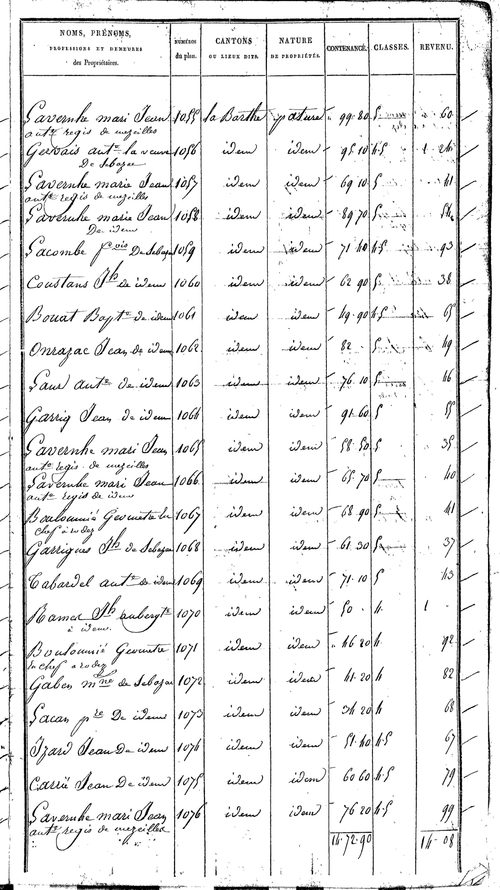 NOMS, PRÉNOMS, PROFESSIONS ET DEMEURES des Propriétaires. NUMÉROS du plan. CANTONS OU LIEUX DITS. NATURE DE PROPRIÉTÉS. CONTENANCE. CLASSES. REVENU.
Lavernhe mari Jean 1055 la Barthe pature 99.80 5 60
antne regis de mezeilles
Gervais antne la veuve 1056 idem idem 95 10 4.5 1 24
De Sebazac
Lavernhe marie Jean 1057 idem idem 69 10 5 41
antne regis de mezeilles
Lavernhe marie Jean 1058 idem idem 89 70 5 54
De idem
Lacombe fois De Sebazac 1059 idem idem 71 40 4.5 93
Coustans Jh De idem 1060 idem idem 62 90 5 38
Bouat Bapte de idem 1061 idem idem 49.90 4.5 65
Onrazac Jean de idem 1062 idem idem 82 . 5 49
Laur ante de idem 1063 idem idem 76.10 5 46
Garrig Jean de idem 1064 idem idem 91.60 5 55
Lavernhe mari Jean 1065 idem idem 58.50 5 35
antne regis de mezeilles
Lavernhe mari Jean 1066 idem idem 65.70 5 40
antne regis de idem
Bouloumié Geometre 1067 idem idem 68.90 5 41
chef a rodez
Garrigues Jh de Sebazac 1068 idem idem 61.30 5 37
Cabardel antne de idem 1069 idem idem 71.10 5 43
Ramet Jh aubergte 1070 idem idem 50 . 4. 1
a idem
Bouloumié Geometre 1071 idem idem 46 20 4 92
en chef a rodez
Gaben mne de Sebazac 1072 idem idem 41.20 4 82
Lacan pre De idem 1073 idem idem 34 20 4 68
Izard Jean De idem 1074 idem idem 51.40 4.5 67
Carrié Jean De idem 1075 idem idem 60 60 4.5 79
Lavernhe mari Jean 1076 idem idem 76 20 4.5 99
antne regis de mezeilles
14.72.90 14.08